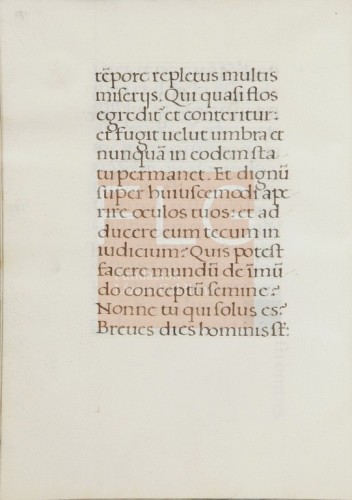 tẽpore repletus multis
miserijs. Qui quasi flos
egreditᷣ et conteritur:
et fugit uelut umbra et
nunquã in eodem sta
tu permanet. Et dignũ
super huiuscemodi ape
rire oculos tuos: et ad
ducere eum tecum in
iudicium? Quis potest
facere mundũ de ĩmũ
do conceptũ semine?
Nonne tu qui solus es?
Breues dies hominis st̃:
FLG